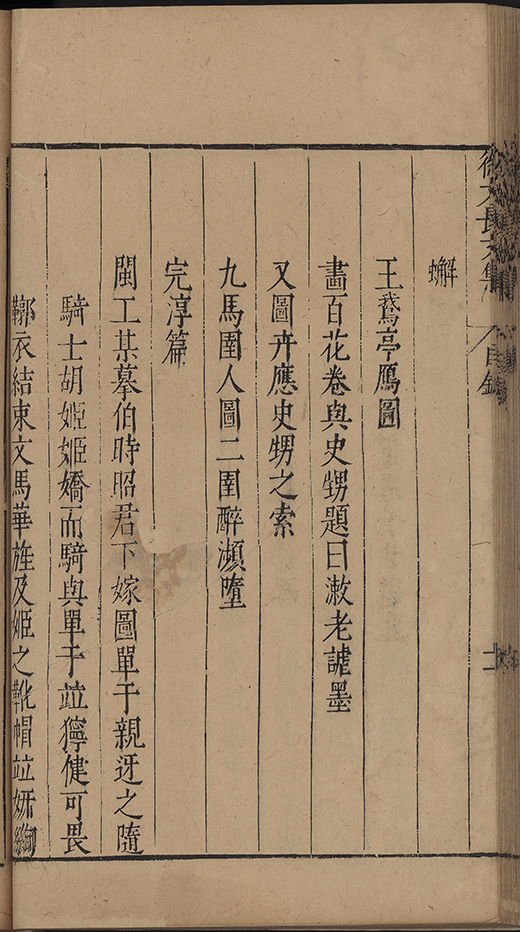 徐文長文集 目錄 十一
蠏
王鵞亭鴈圖
畵百花卷與史甥題曰漱老謔墨
又圖卉應史甥之索
九馬圉人圖二圉醉瀕墮
完淳篇
閩工某摹伯時昭君下嫁圖單于親迓之隨
騎士胡姬姬嬌而騎與單于竝獰健可畏
鞹衣結束文馬華旌及姬之靴帽竝妍